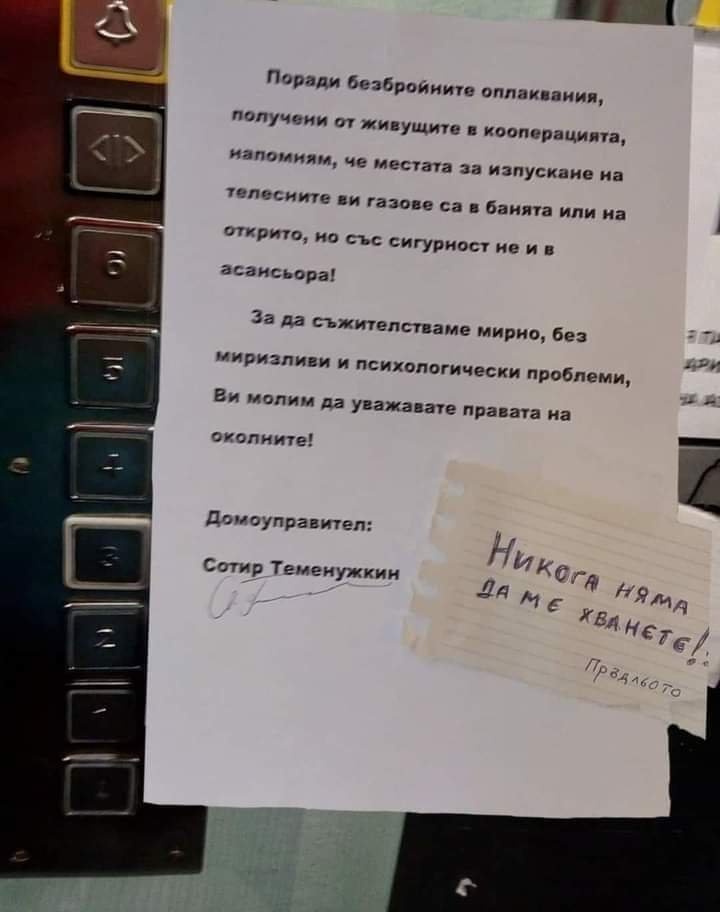 6
5
4
3
2
Поради безбройните оплаквания,
получени от живущите в кооперацията,
напомням, че местата за изпускане на
телесните ви газове са в банята или на
открито, но със сигурност не и в
асансьора!
За да съжителстваме мирно, без
миризливи и психологически проблеми,
Ви молим да уважавате правата на
околните!
Домоуправител:
Сотир Теменужкин
Никога няма
да ме хванете!
Пръдльото